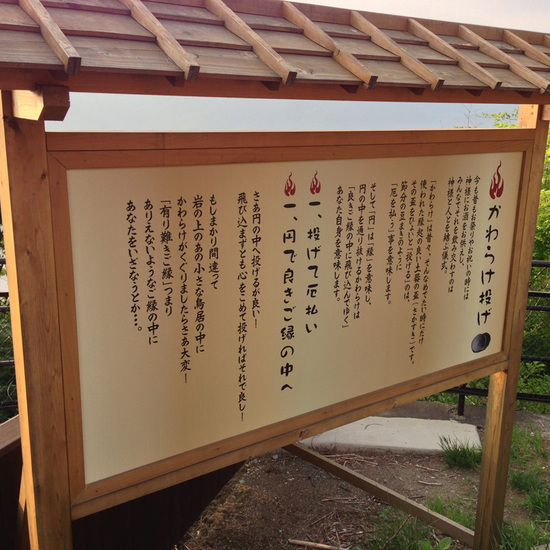 かわらけ投げ
今も昔もお祭りやお祝いの時には
神様にお酒をお供えし、
みんなでそれを飲み交わすのは
神様と人とを結ぶ儀式。
「かわらけ」は昔々、そんなめでたい時にだけ
使われた縁起の良い土器の盃(さかずき)です。
その盃をぴょいと投げる」のは、
節分の豆まきのように
「厄を払う」事を意味します。
そして「円」は「縁」を意味し、
円の中を通り抜けるかわらけは
「良きご縁の中に飛び込んでゆく」
あなた自身を意味します。
一、投げて厄払い
一、円で良きご縁の中へ
さあ円の中へ投げるが良い!
飛び込まずとも心をこめて投げればそれで良し!
もしまかり間違って
岩の上のあの小さな鳥居の中に
かわらけがくぐりましたらさあ大変!
「有り難きご縁」つまり
ありえないようなご縁の中に
あなたをいざなうとか…。